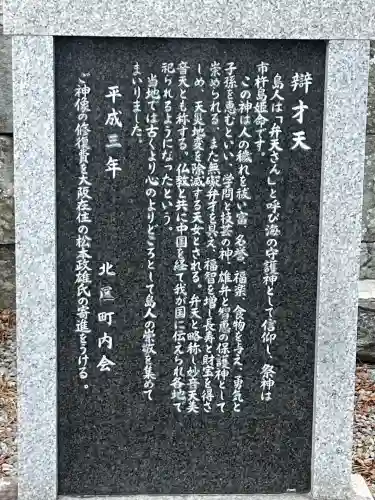 辯才天
島人は「弁天さん」と呼び海の守護神として信仰し、祭神は
市杵島姫命です。
この神は人の穢れを祓い富、名誉、福楽、食物を与え、勇気と
子孫を恵むといい、学問と技芸の神、雄弁と智慧の保護神として
崇められる。また無礙弁才を具え、福智を増し長寿と財宝を得さ
しめ、天災地変を除滅する天女とされる。弁天と略称し妙音天美
音天とも称する。仏教と共に中国を経て我が国に伝えられ各地で
祀られるようになったという。
当地では古くより心のよりどころとして島人の崇敬を集めて
まいりました。
平成三年
北区町内会
ご神像の修復費を大阪在住の松本政雄氏の寄進をうける。